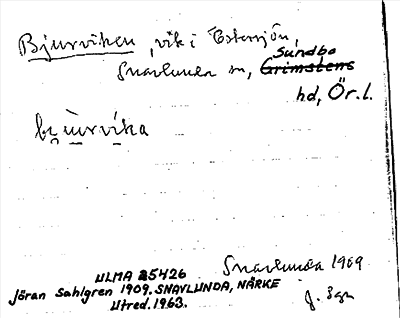 Bjurviken, vik i Estersjön,
Sundbo
Snavlunda sn, Grimstens
hd, Ör. l.
bjùrvika
Snavlunda 1909
ULMA 25426
J. Sgn
Jöran Sahlgren 1909. SNAVLUNDA, NÄRKE
Utred. 1963.